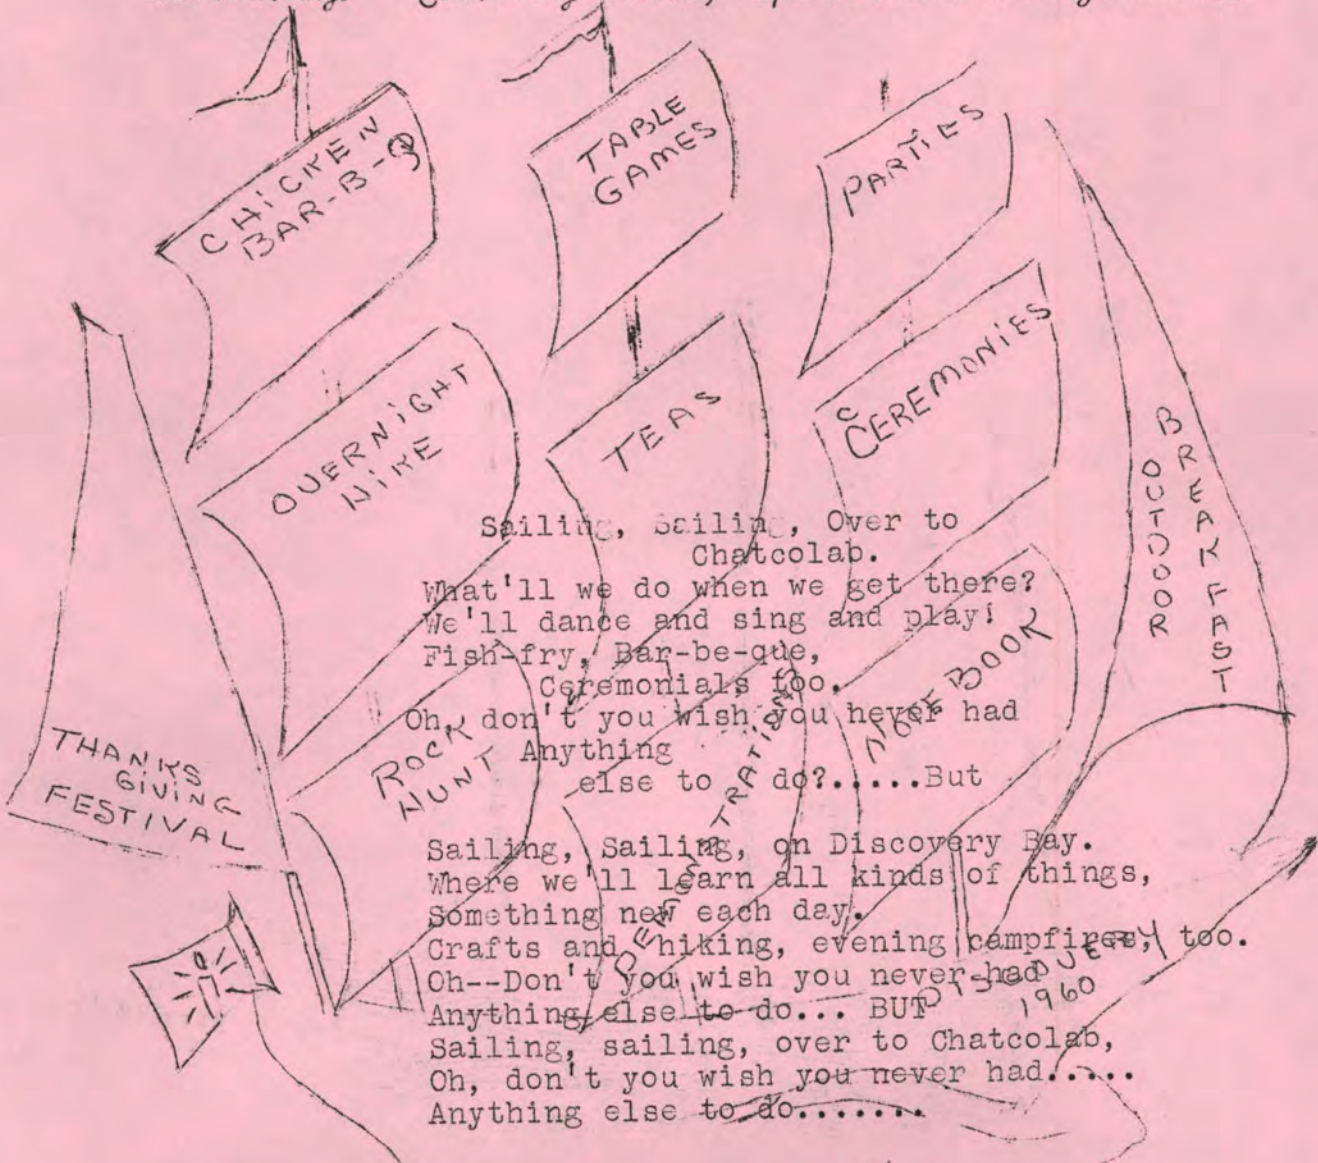 CHICKEN
BAR-B-Q
TABLE
GAMES
PARTIES
OVERNIGHT
HIKE
TEAS
CEREMONIES
OUTDOOR
BREAKFAST
THANKS
GIVING
FESTIVAL
ROCK
HUNT
NOTE BOOK
DISCOVERY
1960
Sailing, Sailing, Over to
Chatcolab.
What'll we do when we get there?
We'll dance and sing and play!
Fish-fry, Bar-be-que,
Ceremonials too.
Oh, don't you wish you never had
Anything
else to do?.....But
Sailing, Sailing, on Discovery Bay.
Where we'll learn all kinds of things,
Something new each day.
Crafts and hiking, evening campfires, too.
Oh--Don't you wish you never had
Anything else to do... BUT
Sailing, sailing, over to Chatcolab,
Oh, don't you wish you never had.....
Anything else to do.......